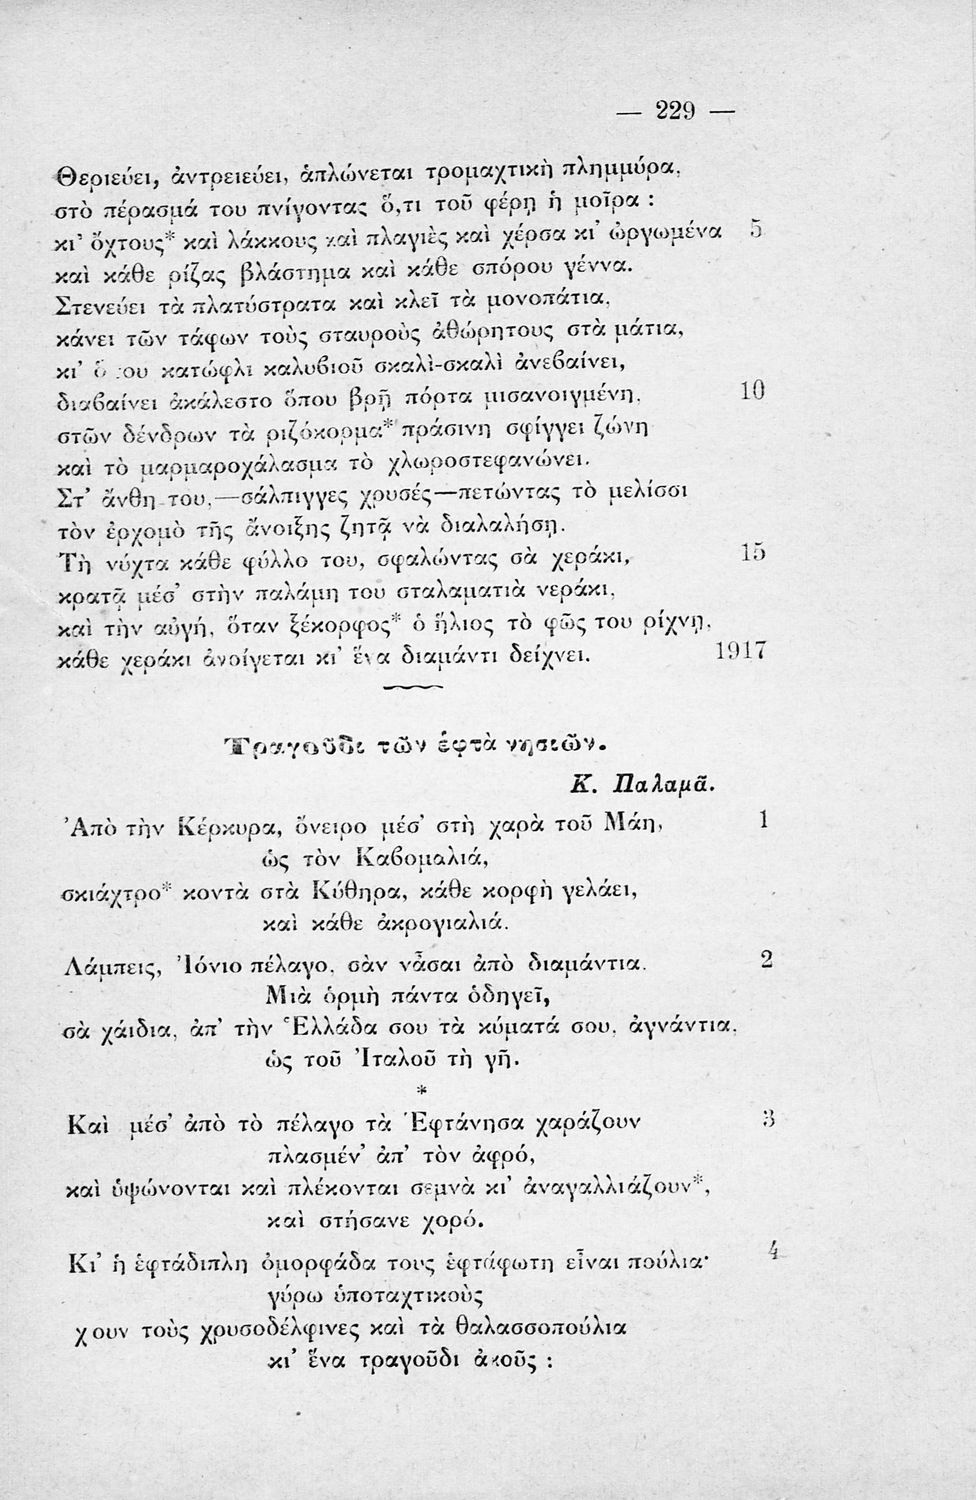 — 229 —
Θεριεύει, ἀντρειεύει, ἁπλώνεται τρομαχτικὴ πλημμύρα,
στὸ πέρασμά του πνίγοντας ὅ,τι τοῦ φέρῃ ἡ μοῖρα :
κι᾿ ὄχτους* καὶ λάκκους καὶ πλαγιὲς καὶ χέρσα κι᾿ ὠργωμένα 5
καὶ κάθε ρίζας βλάστημα καὶ κάθε σπόρου γέννα.
Στενεύει τὰ πλατύστρατα καὶ κλεῖ τὰ μονοπάτια,
κάνει τῶν τάφων τοὺς σταυροὺς ἀθώρητους στὰ μάτια,
κι᾿ κατώφλι καλυβιοῦ σκαλὶ-σκαλὶ ἀνεβαίνει,
διαβαίνει ἀκάλεστο ὅπου βρῇ πόρτα μισανοιγμένη, 10
στῶν δένδρων τὰ ριζόκορμα* πράσινη σφίγγει ζώνη
καὶ τὸ μαρμαροχάλασμα τὸ χλωροστεφανώνει.
Στ᾿ ἄνθη του,—σάλπιγγες χρυσές—πετώντας τὸ μελίσσι
τὸν ἐρχομὸ τῆς ἄνοιξης ζητᾷ νὰ διαλαλήσῃ.
Τὴ νύχτα κάθε φύλλο του, σφαλώντας σὰ χεράκι, 15
κρατᾷ μέσ᾿ στὴν παλάμη του σταλαματιὰ νεράκι,
καὶ τὴν αὐγή, ὅταν ξέκορφος* ὁ ἥλιος τὸ φῶς του ρίχνῃ,
κάθε χεράκι ἀνοίγεται κι᾿ ἕνα διαμάντι δείχνει. 1917
Τραγοῦδι τῶν ἑφτὰ νησιῶν.
Κ. Παλαμᾶ.
Ἀπὸ τὴν Κέρκυρα, ὄνειρο μέσ᾿ στὴ χαρὰ τοῦ Μάη, 1
ὡς τὸν Καβομαλιά,
σκιάχτρο* κοντὰ στὰ Κύθηρα, κάθε κορφὴ γελάει,
καὶ κάθε ἀκρογιαλιά.
Λάμπεις, Ἰόνιο πέλαγο, σὰν νἆσαι ἀπὸ διαμάντια. 2
Μιὰ ὁρμὴ πάντα ὁδηγεῖ,
σὰ χάιδια, ἀπ᾿ τὴν Ἑλλάδα σου τὰ κύματά σου, ἀγνάντια,
ὡς τοῦ Ἰταλοῦ τὴ γῆ.
*
Καὶ μέσ᾿ ἀπὸ τὸ πέλαγο τὰ Ἑφτάνησα χαράζουν 3
πλασμέν᾿ ἀπ᾿ τὸν ἀφρό,
καὶ ὑψώνονται καὶ πλέκονται σεμνὰ κι᾿ ἀναγαλλιάζουν*,
καὶ στήσανε χορό.
Κι᾿ ἡ ἑφτάδιπλη ὀμορφάδα τους ἑφτάφωτη εἶναι πούλια· 4
γύρω ὑποταχτικοὺς
χουν τοὺς χρυσοδέλφινες καὶ τὰ θαλασσοπούλια
κι᾿ ἕνα τραγοῦδι ἀκοῦς :